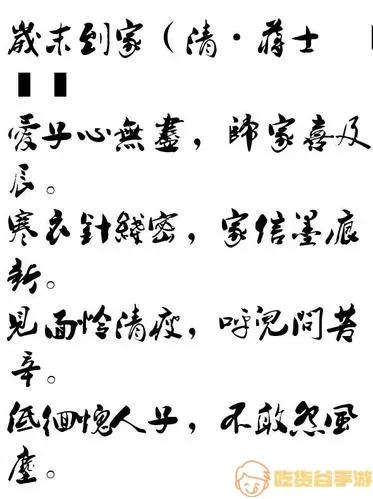 歲末到家（清·蔣士
愛子心無盡，歸家喜及
辰。
寒衣針綫密，家信墨痕
新。
見面憐清瘦，呼兒問苦
辛。
低徊愧人子，不敢怨風
塵。
吃货谷手游